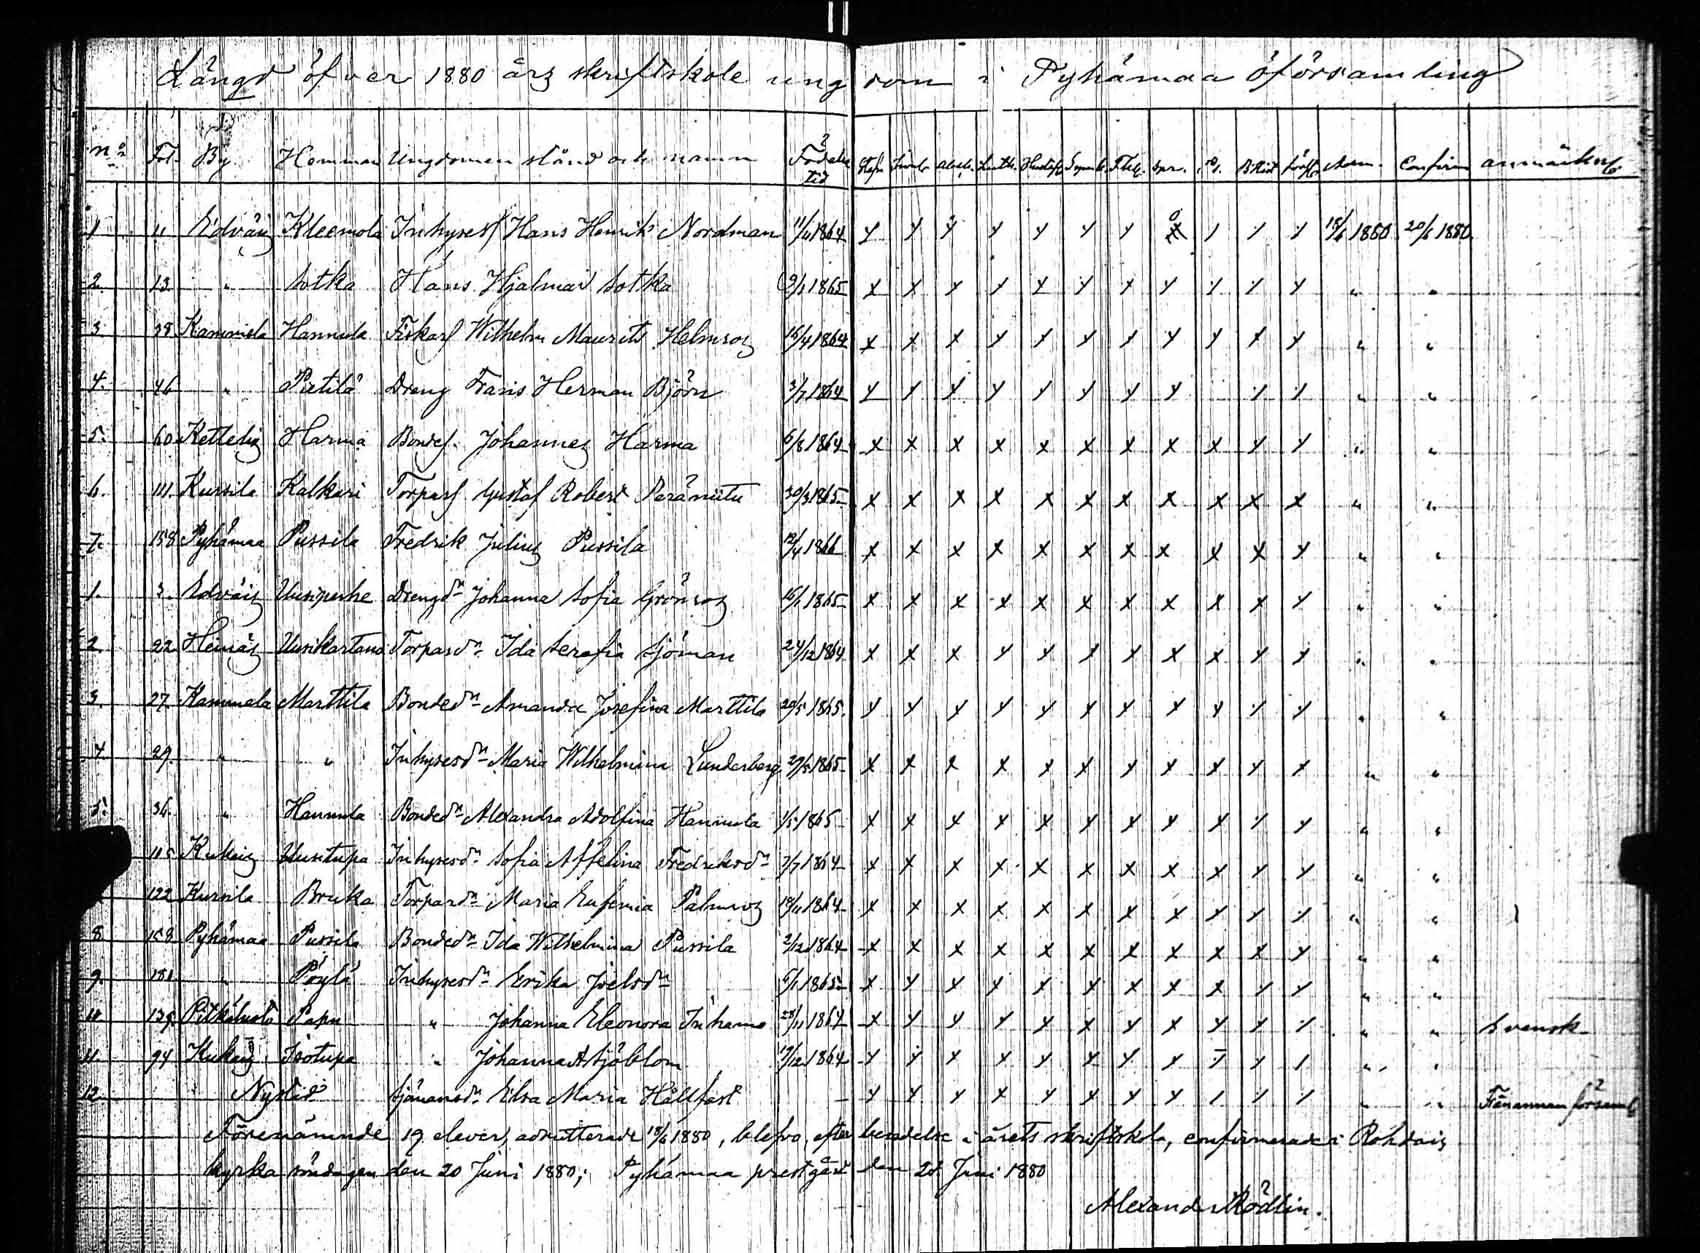 Längd öfver 1880 års skriftskole ungdom i Pyhämaa församling
No Fol. By Hemman Ungdomens stånd och namn Födelse tid Abcb. Luth. Hustafl. Symb. Spr. Adm. Confirm anmärkn
1 11 Edväis Kleemola Inhyses Hans Henrik Nordman 11/11 1864 x x x x x x x x x x x 18/6 1880 20/6 1880
2. 13 " Sotka Hans Hjalmar Sotka 9/3 1865 x x x x x x x x x x x " "
3 38 Kammela Hannula Fiskars Wilhelm Maurits Helmros 15/4 1864 x x x x x x x x x x x " "
4. 46 " Pietilä Dreng Frans Herman Björn 3/7 1864 x x x x x x x x x x " "
5. 60 Ketteliz Harma Bondes. Johannes Harma 6/8 1864 x x x x x x x x x x x " "
6. 111 Kursila Kalkari Torpars Gustaf Robert Peräniitu 30/3 1865 x x x x x x x x x x x " "
7. 158 Pyhämaa Pussila Fredrik Julius Pussila 12/4 1866 x x x x x x x x x x x " "
1. 3. Edväis Uusiperhe Drengdr Johanna Sofia Grönros 15/1 1865 x x x x x x x x x x x " "
2. 22 Heinäs Uusikartano Torpardr. Ida Serafia Sjöman 24/12 1864 x x x x x x x x x x x " "
3. 27. Kammela Marttila Bondedr Amanda Josefina Marttila 20/5 1865. x x x x x x x x x x x " "
4. 29. " " Inhysesdr Maria Wilhelmina Lunderberg 29/5 1865 x x x x x x x x x x x " "
5. 36. " Hannula Bondedr Alexandra Adolfina Hannula 1/5 1865 x x x x x x x x x x x " "
115 Kukais Uusitupa Inhysesdr Sofia Affelina Fredriksdr 7/7 1864 x x x x x x x x x x x " "
122 Kursila Bruka Torpardr Maria Eufemia Palmros 19/11 1864 x x x x x x x x x x x " "
8 158 Pyhämaa Pussila Bondedr Ida Wilhelmina Pussila 2/12 1864 x x x x x x x x x x x " "
9. 181 " Pöylä Inhysesdr Erika Joelsdr 6/1 1865 x x x x x x x x x x x " "
10 139. Pitkäluoto Papu " Johanna Eleonora Inhamo 28/11 1864 x x x x x x x x x x x " " Svensk
11. 94 Kukais Isotupa " Johanna Sjöblom 19/12 1864 x x x x x x x x x x x " "
12 Nystad Sjömansdr. Elsa Maria Hållfast x x x x x x x x x x x " " Från annan församl.
Förenämnde 19 elever, admitterade 18/6 1880, blefvo, efter bevistelse i årets skriftskola, confirmerade i Rohdais
kyrka söndagen den 20 Juni 1880; Pyhämaa prestgård den 20 Juni 1880
Alexander Mödlin.